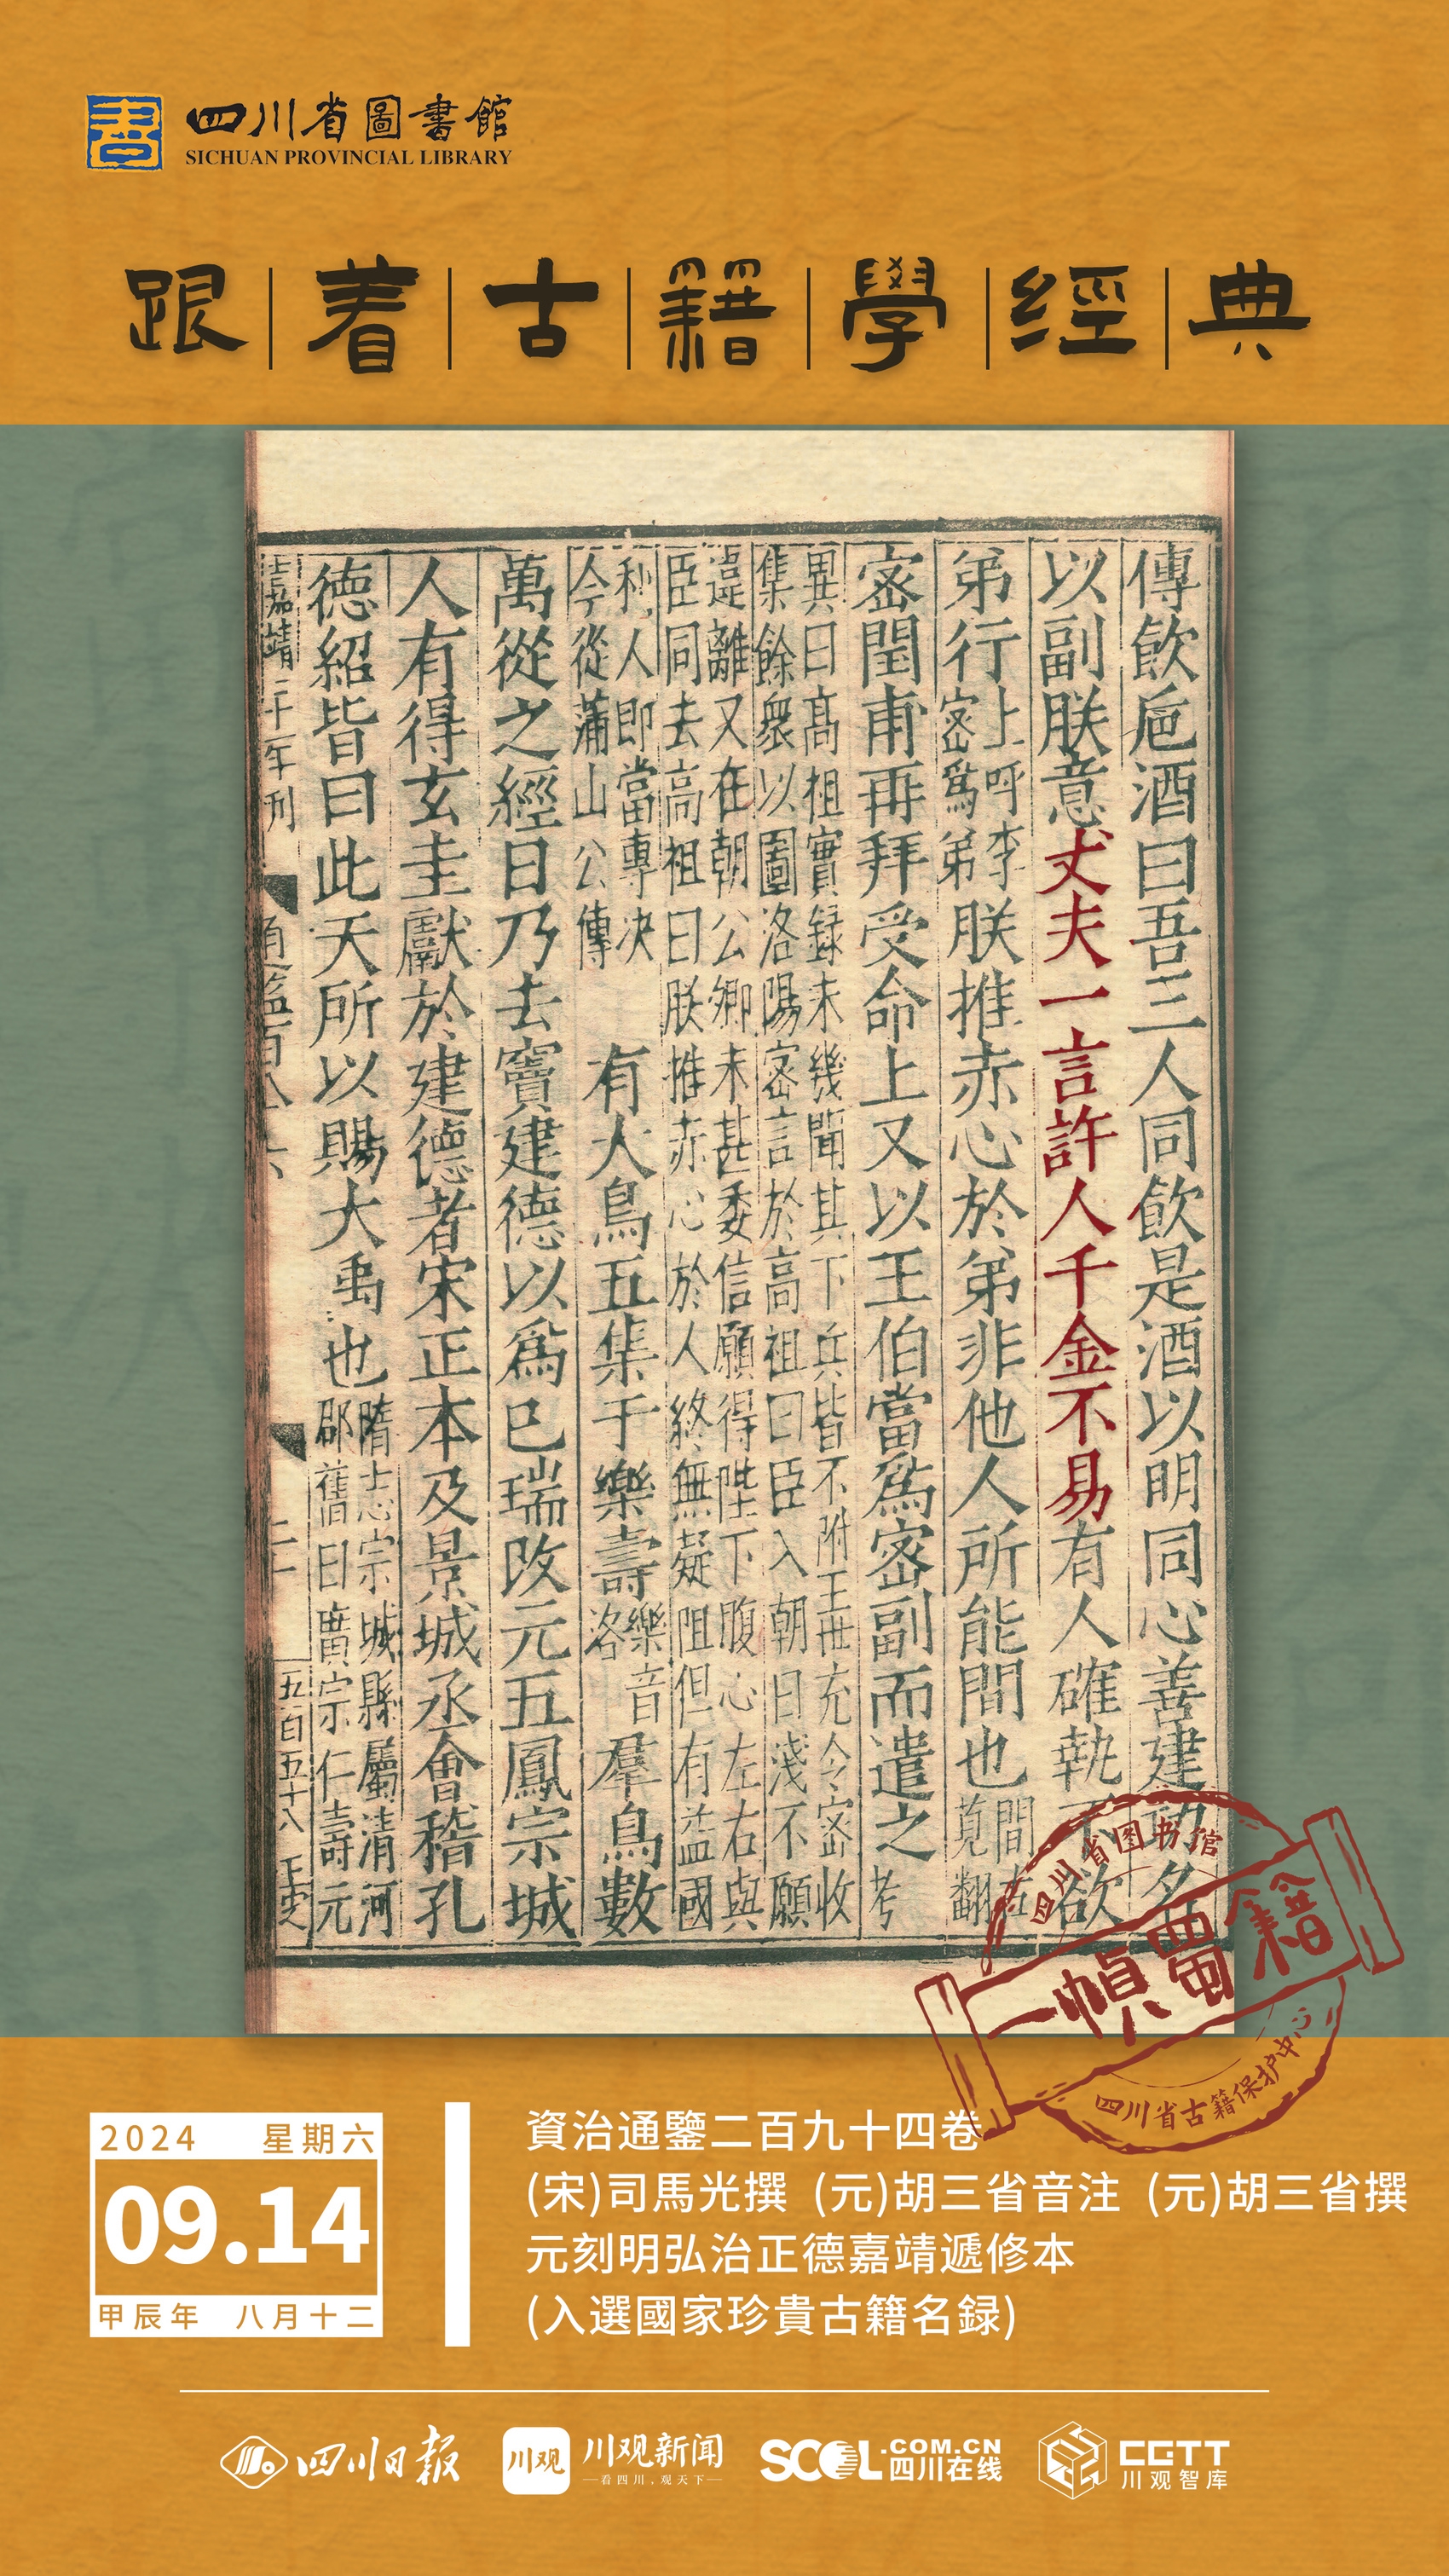 四川省圖書館
SICHUAN PROVINCIAL LIBRARY
跟着古籍學經典
傳飲巵酒曰吾三人同飲是酒以明同心善建功名
以副朕意丈夫一言許人千金不易有人確執不欲
弟行上呼李密爲弟朕推赤心於弟非他人所能間也間
密閏甫再拜受命上又以王伯當爲密副而遣之考
異曰高祖實録未幾聞其下兵皆不附王世充令密收
集餘衆以圖洛陽密言於高祖曰臣入朝日淺不願
違離又在朝公卿未甚委信願得陛下腹心左右與
臣同去高祖曰朕推赤心於人終無疑阻但有益國
利人即當專决
今從蒲山公傳
有大鳥五集于樂壽樂音洛羣鳥數
萬從之經日乃去竇建德以爲己瑞改元五鳳宗城
人有得玄圭獻於建德者宋正本及景城丞會稽孔
德紹皆曰此天所以賜大禹也隋志宗城縣屬清河郡舊曰廣宗仁壽元
嘉靖二十年刊
五百五十八
四川省图书馆
一幀蜀籍
四川省古籍保护中心
2024 星期六
09.14
甲辰年 八月十二
資治通鑒二百九十四卷
(宋)司馬光撰 (元)胡三省音注 (元)胡三省撰
元刻明弘治正德嘉靖遞修本
(入選國家珍貴古籍名録)
四川日报
川观
川观新闻
看四川，观天下
SCOL.COM.CN
四川在线
CGTT
川观智库